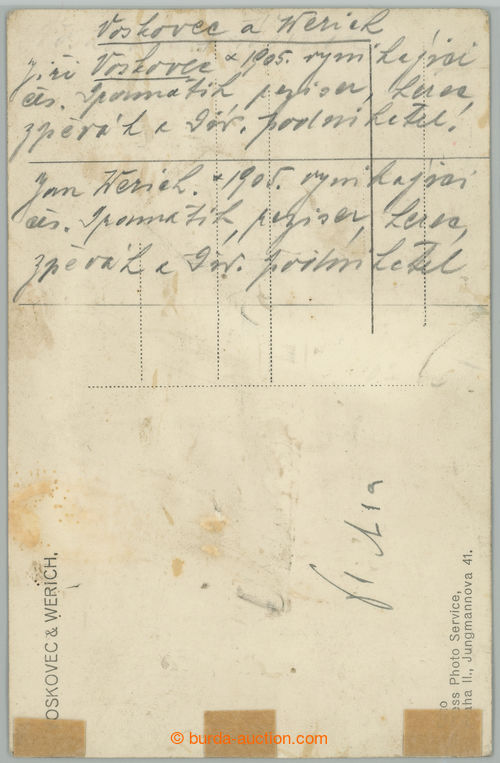 Voskovec a Werich
Jiří Voskovec * 1905. vynikající
čes. Dramatik, režiser, herec,
zpěvák a Div. podnikatel.
Jan Werich. * 1905. vynikající
čes. Dramatik, režiser, herec,
zpěvák a Div. podnikatel
OSKOVEC & WERICH.
to
ess Photo Service,
aha II., Jungmannova 41.
© burda-auction.com